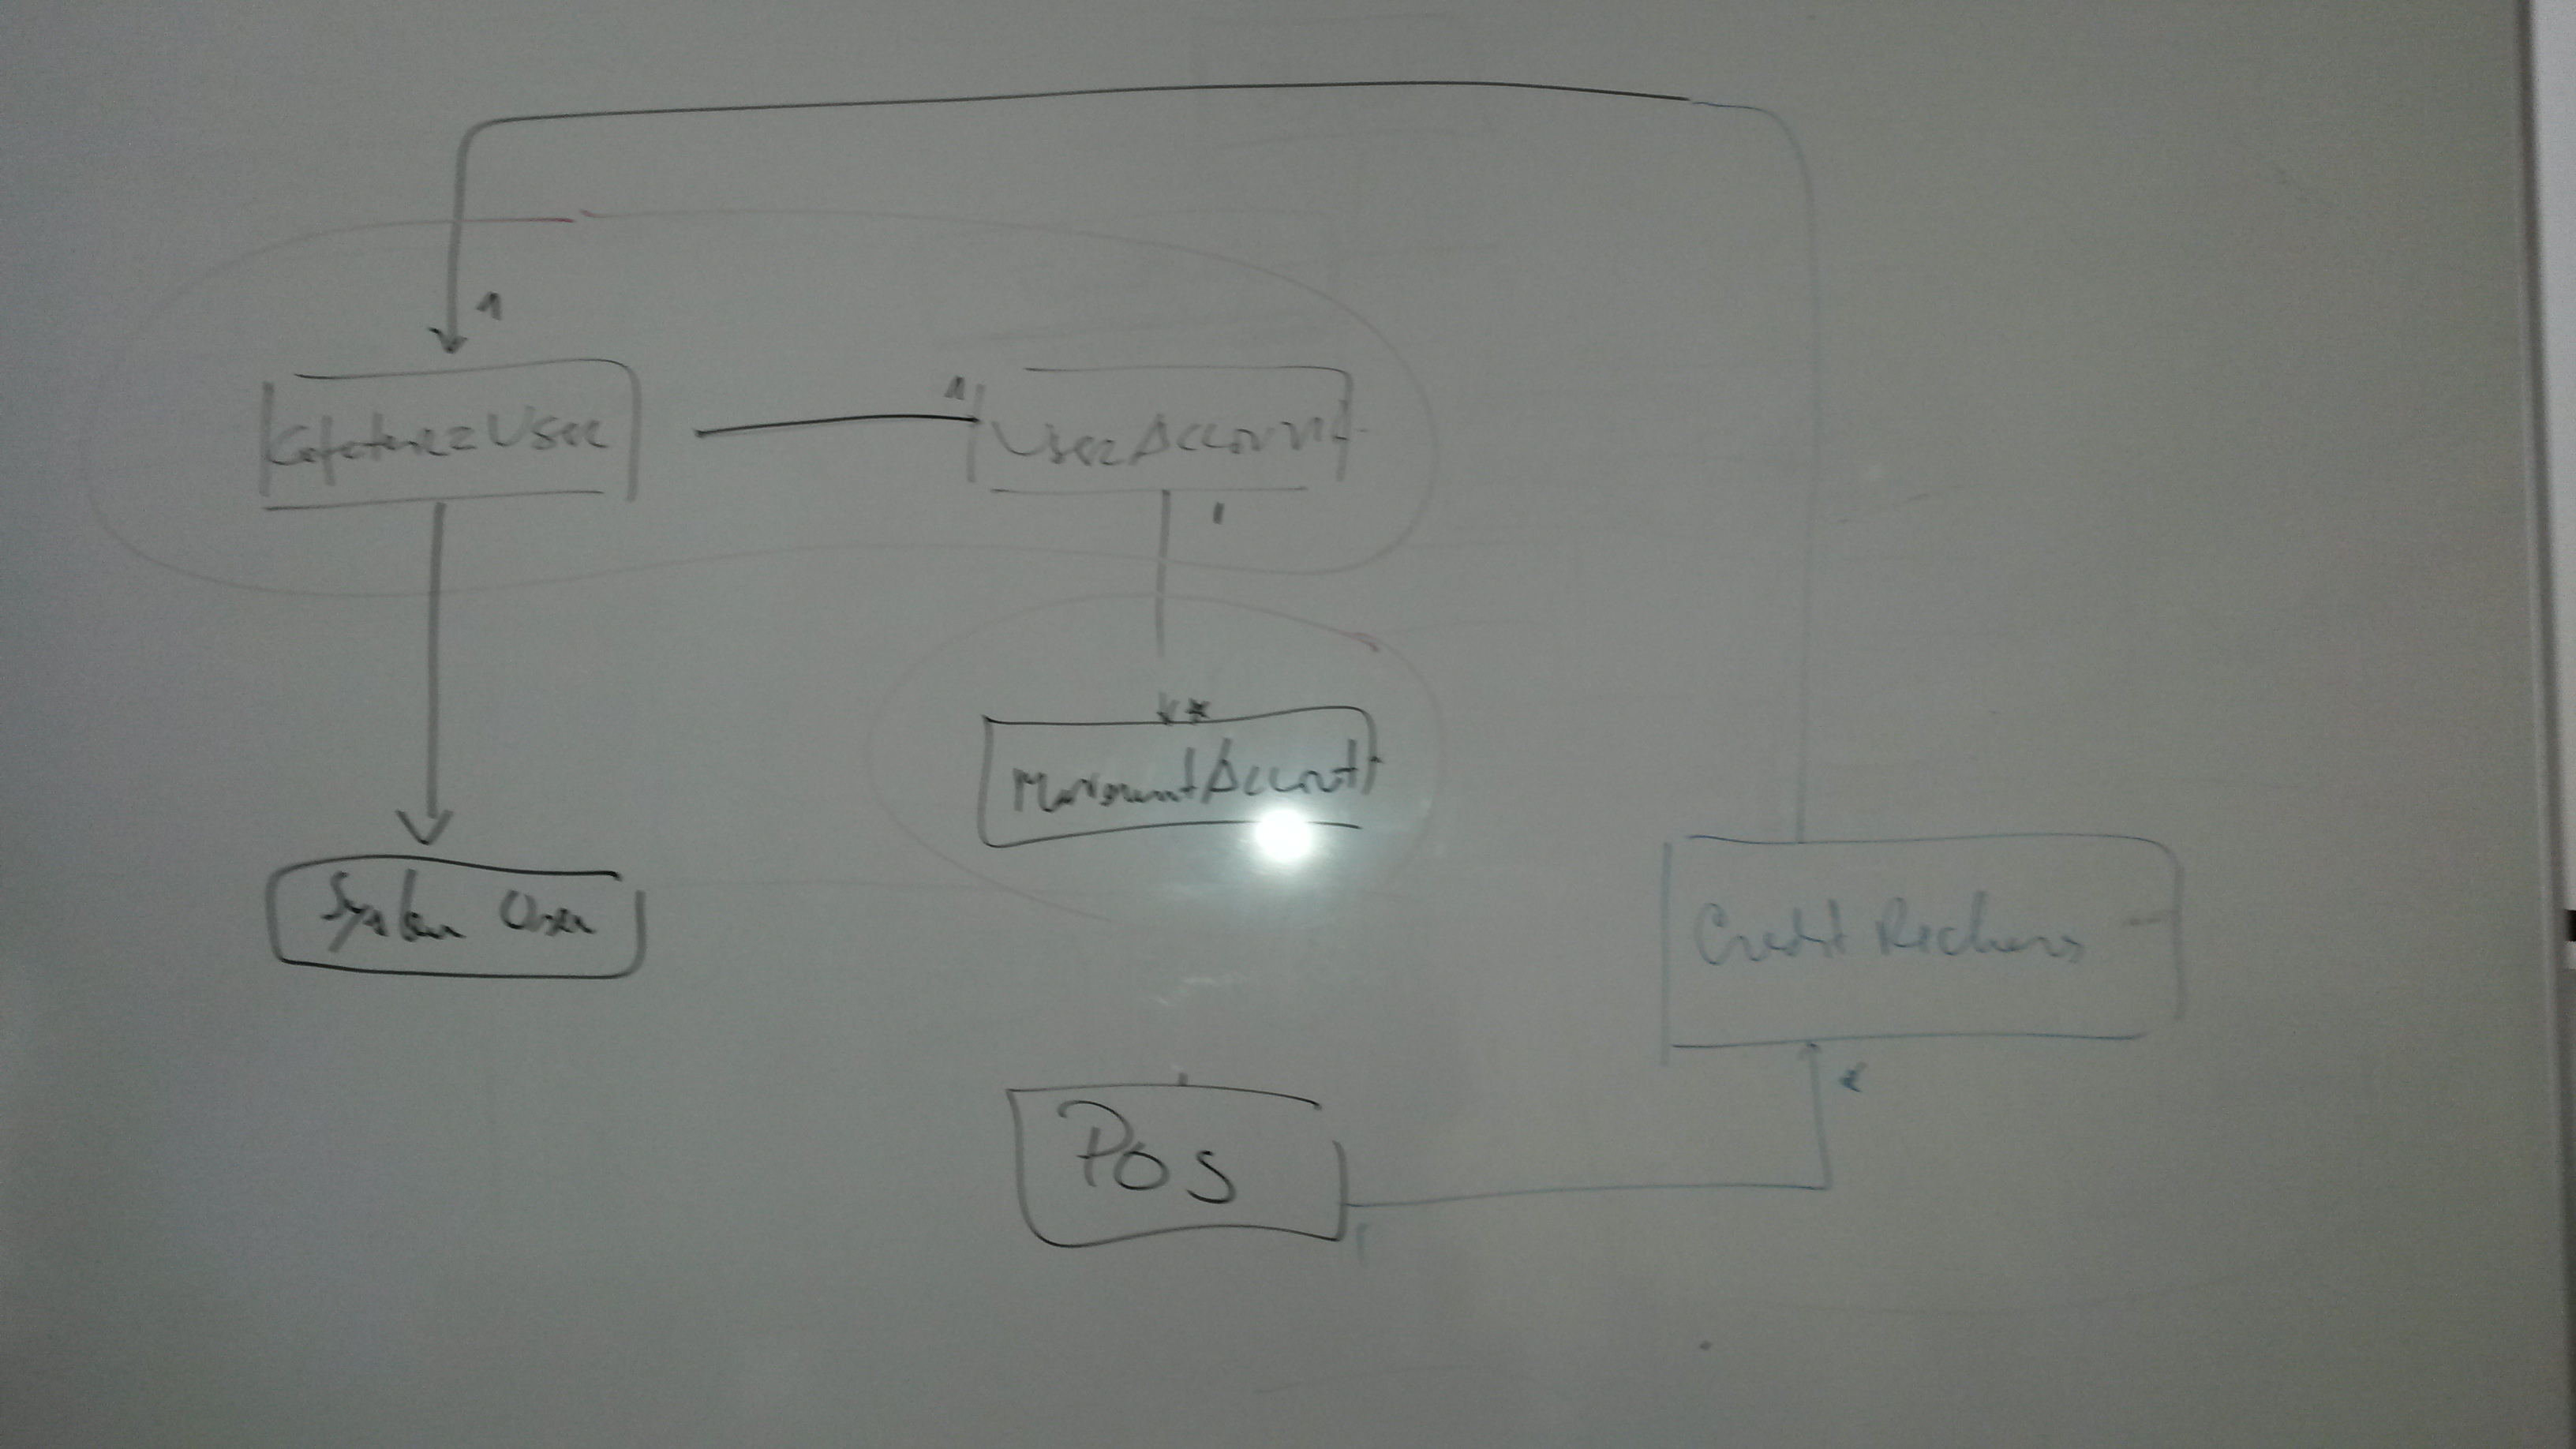 1
CafeteriaUser
1
UserAccount
1
*
MovementAccount
System User
Credit Recharg
*
POS
1